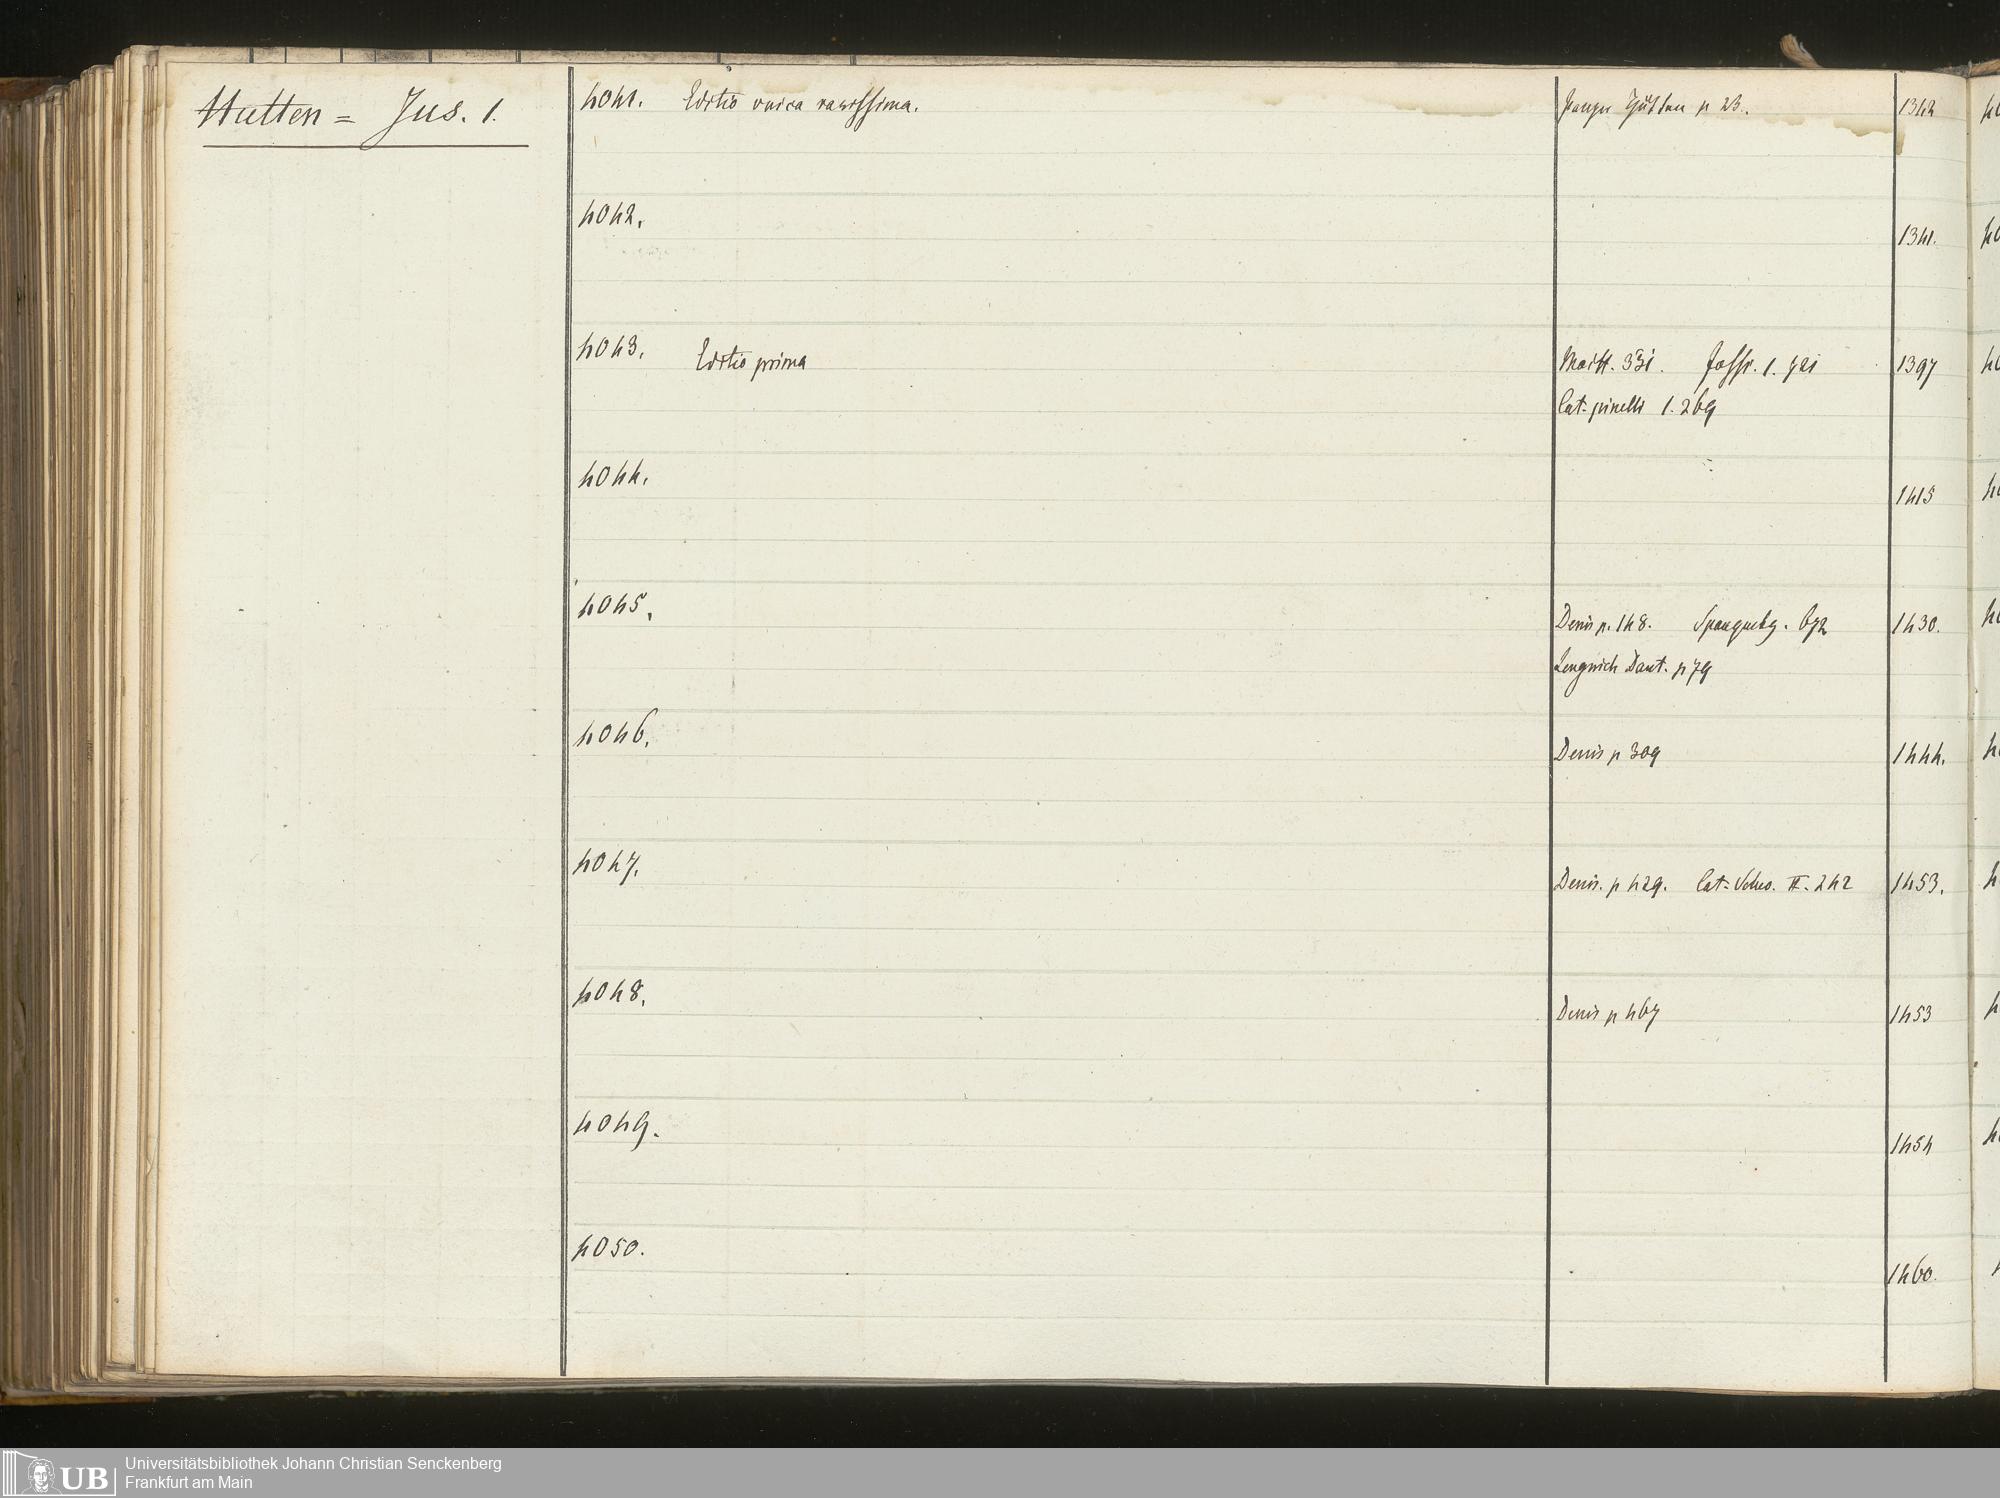 Hutten = Jus. 1.
4041. Editio unica rarissima. p 23. 1342
4042. 1341.
4043. Editio prima Maitt. 331. Fossi. 1. 721 1397
Cat. pinelli 1. 269
4044. 1415
4045. Denis p. 148. 672 1430.
Lengnich p 79
4046. Denis p 309 1444.
4047. Denis. p 429. Cat. II. 242 1453.
4048. Denis p 467 1453
4049. 1454
4050. 1460.
UB Universitätsbibliothek Johann Christian Senckenberg
Frankfurt am Main